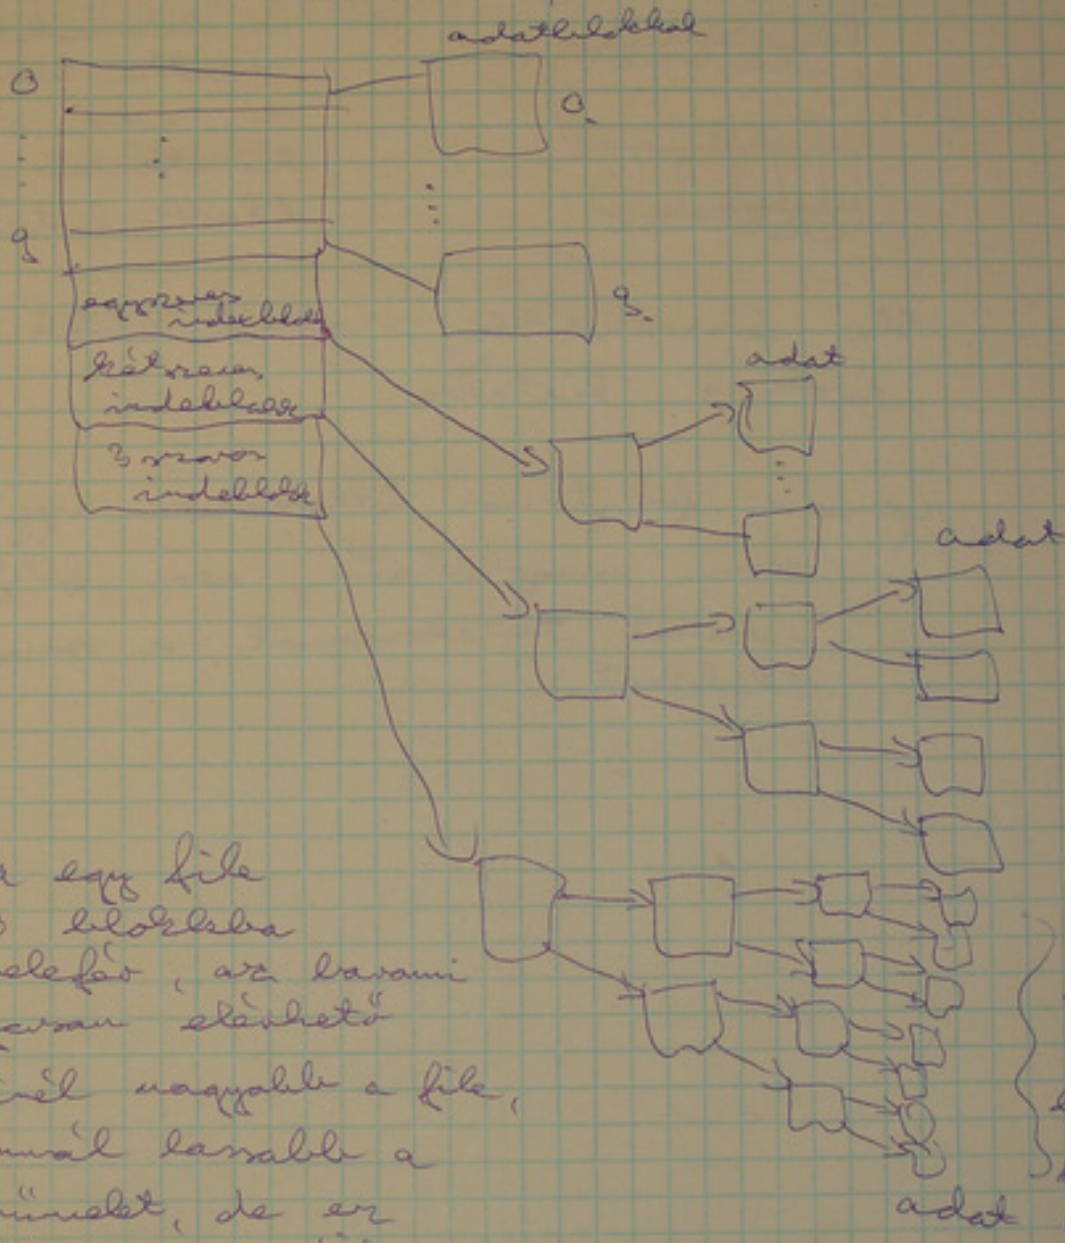 adatblokkok
0
0.
9
9.
egyszeres
indexblokk
kétszeres
indexblokk
3 szoros
indexblokk
adat
adat
a egy file
blokkba
belefér, az bármi
gyorsan elérhető
minél nagyobb a file,
annál lassabb a
művelet, de ez
adat